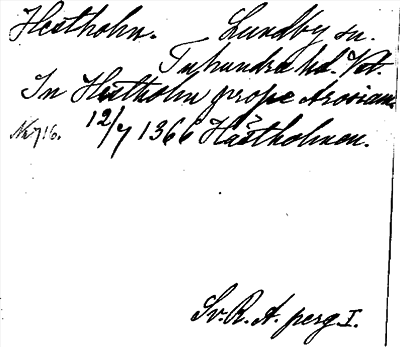 Hestholm. Lundby sn.
Tuhundra hd. Vstm.
In Hestholm prope Arosiam
No 716. 12/7 1366 Hästholmen.
Sv. R. A. perg. I.